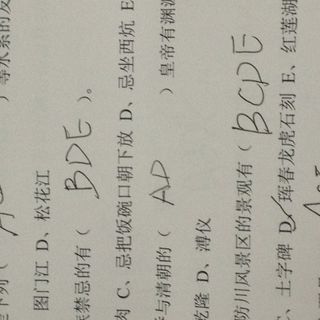 下列（ ）等水系的发
图门江 D、松花江
禁忌的有（ BDE ）。
肉 C、忌把饭碗口朝下放 D、忌坐西炕 E
与清朝的（ AD ）皇帝有渊源
乾隆 D、溥仪
防川风景区的景观有（ BCDE
、土字碑 D、珲春龙虎石刻 E、红莲湖